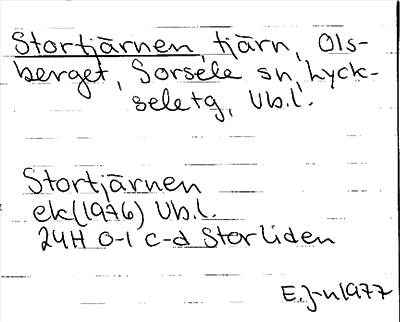 Stortjärnen, tjärn, Ols-
berget, Sorsele sn, Lyck-
seletg, Vb.l.
Stortjärnen
ek(1976) Vb.l.
24H 0-1 c-d Storliden
E.J-n 1977